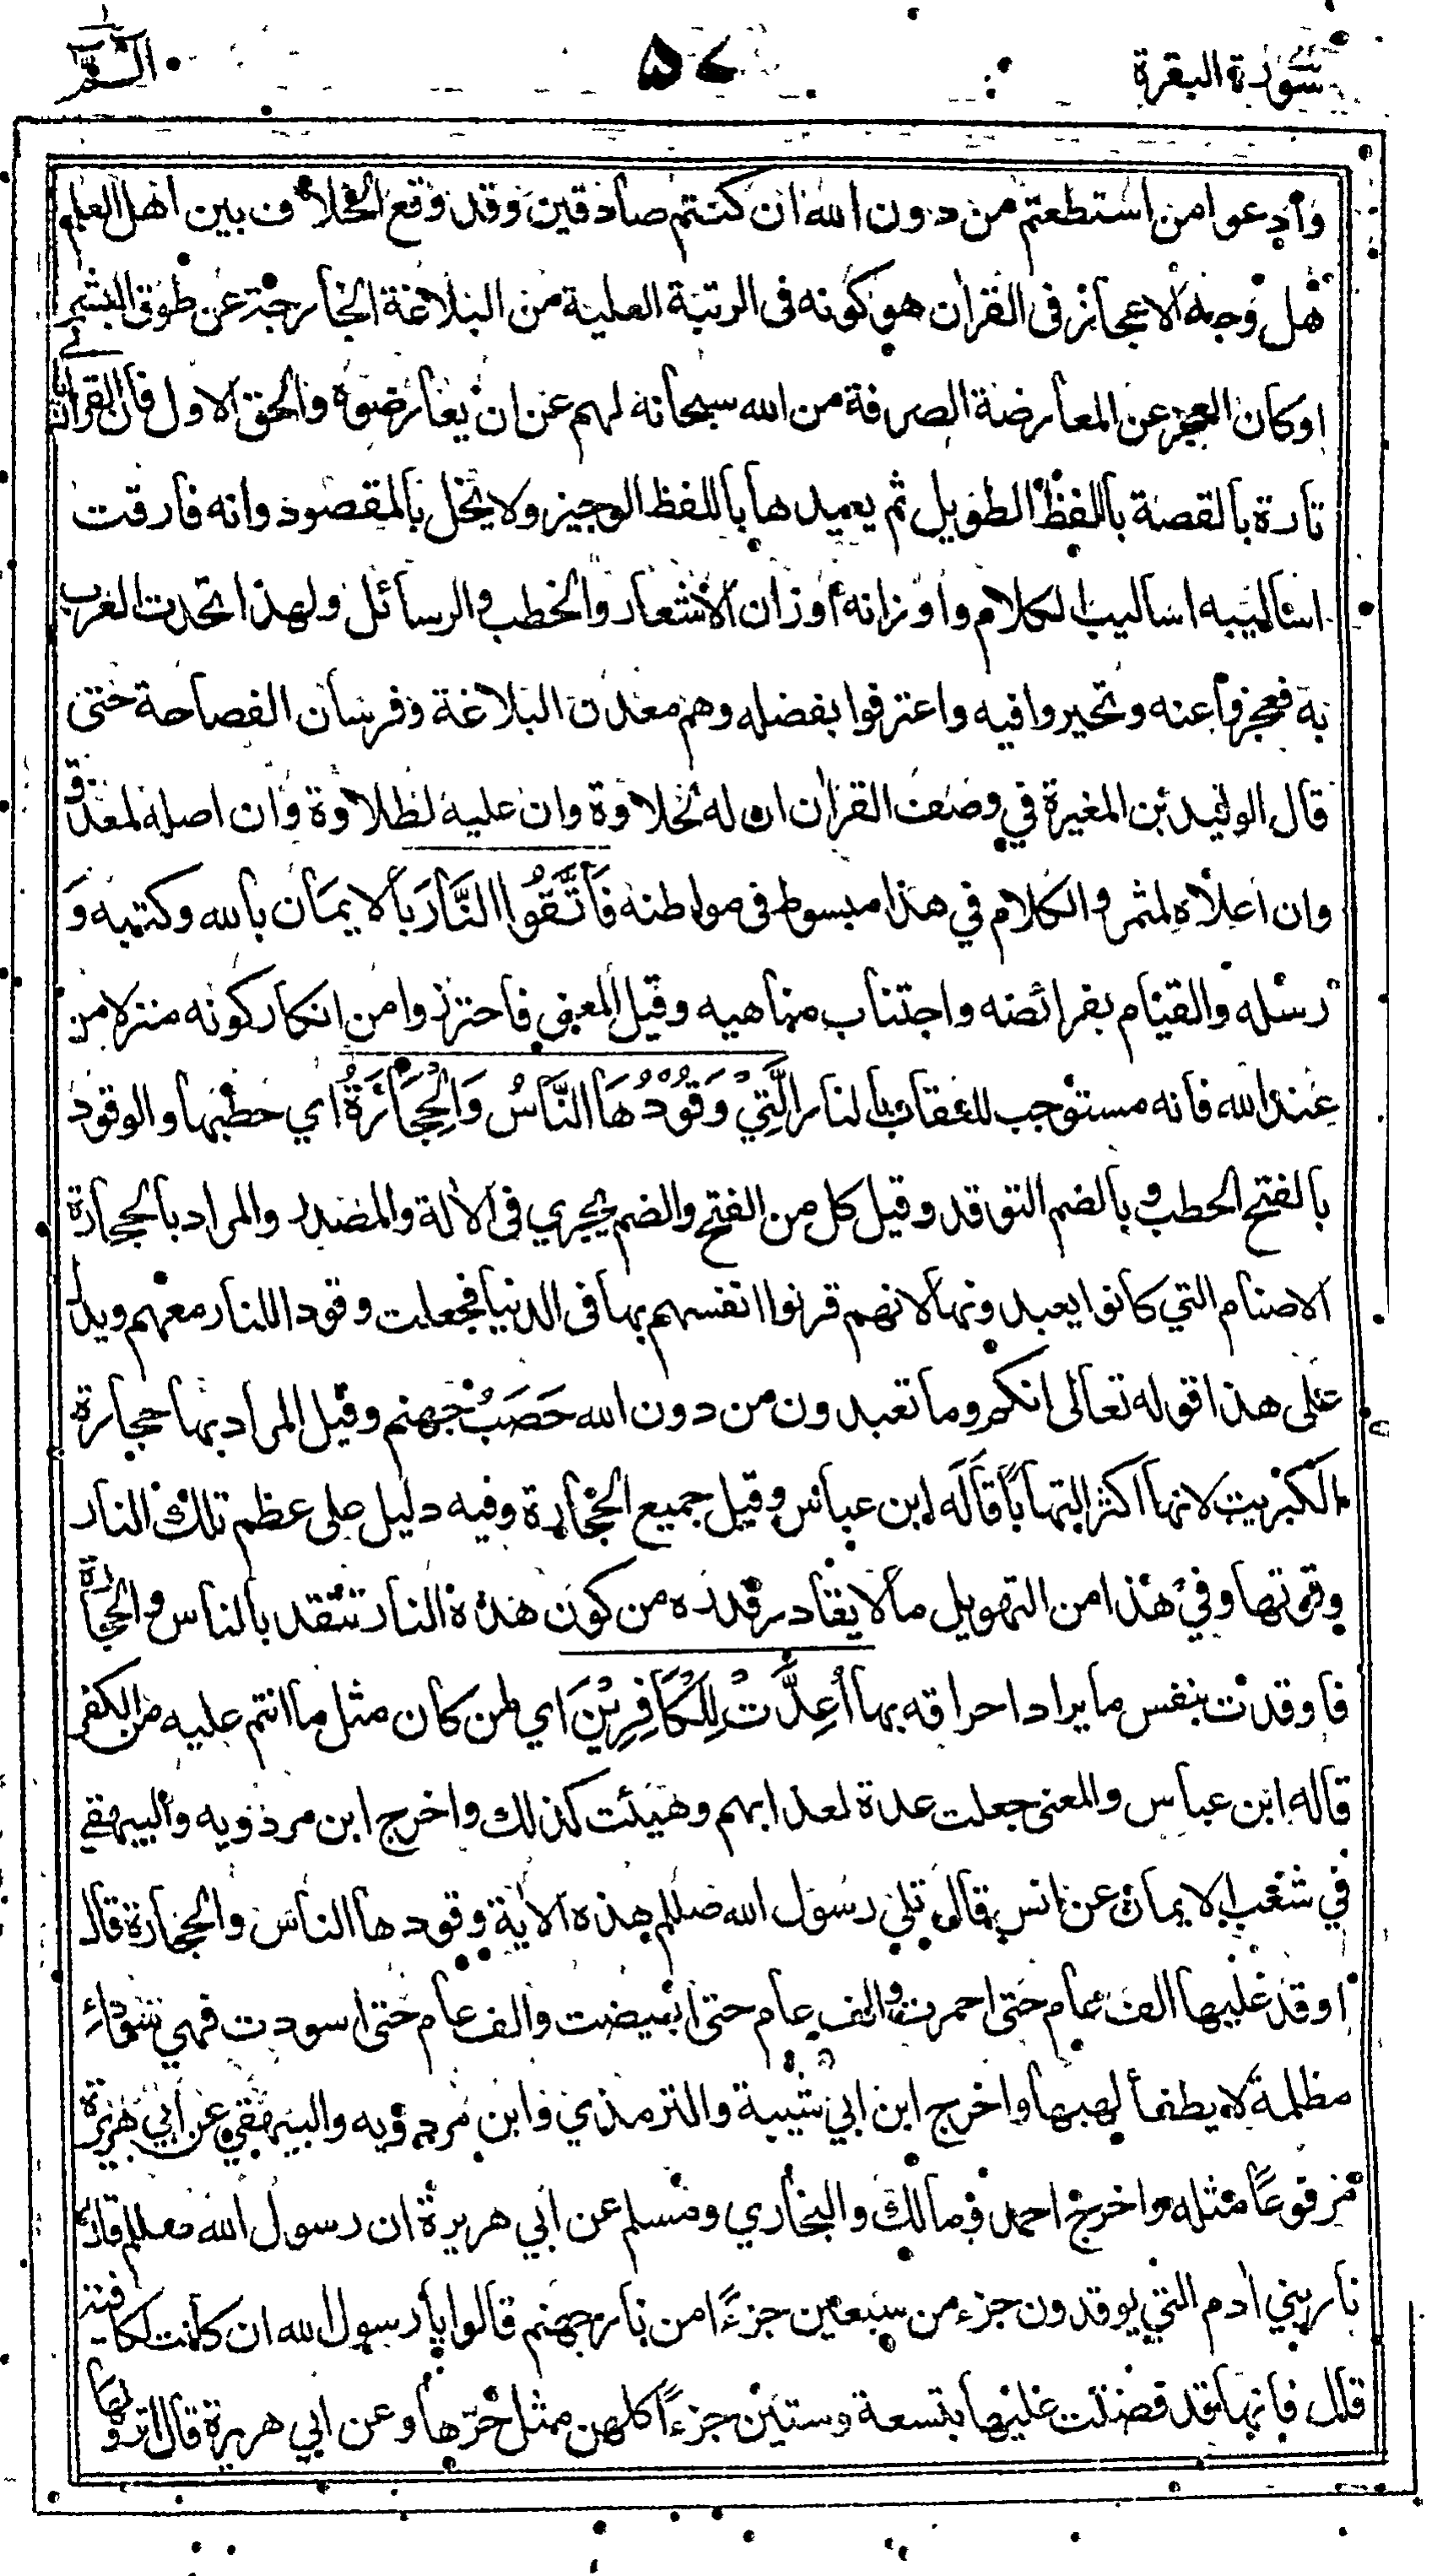 سورة البقرة ٥٧ الٓمّ
وادعوا من استطعتم من دون الله ان كنتم صادقين وقد وقع الخلاف بين اهل العلم
هل وجه الاعجاز في القران هو كونه في الرتبة العلية من البلاغة الخارجة عن طوق البشر
او كان العجز عن المعارضة الصرفة من الله سبحانه لهم عن ان يعارضوه والحق الاول فان القران ياتي
تارة بالقصة باللفظ الطويل ثم يعيدها باللفظ الوجيز ولا يخل بالمقصود وانه فارقت
اساليبه اساليب الكلام واوزانه أوزان الاشعار والخطب والرسائل ولهذا تحدت العرب
به فعجزوا عنه وتحيروا فيه واعترفوا بفضله وهم معدن البلاغة وفرسان الفصاحة حتى
قال الوليد بن المغيرة في وصف القران ان له لحلاوة وان عليه لطلاوة وان اصله لمغدق
وان اعلاه لمثمر والكلام في هذا مبسوط في مواطنه فَاتَّقُوا النَّارَ بالايمان بالله وكتبه و
رسله والقيام بفرائضه واجتناب مناهيه وقيل المعنى فاحترزوا من انكار كونه منزلا من
عند الله فانه مستوجب للعقاب بالنار الَّتِيْ وَقُوْدُهَا النَّاسُ وَالْحِجَارَةُ اي حطبها والوقود
بالفتح الحطب وبالضم التوقد وقيل كل من الفتح والضم يجري في الآلة والمصدر والمراد بالحجارة
الاصنام التي كانوا يعبدونها لانهم قرنوا انفسهم بها في الدنيا فجعلت وقودا للنار معهم ويدل
على هذا قوله تعالى انكم وما تعبدون من دون الله حَصَبُ جهنم وقيل المراد بها حجارة
الكبريت لانها اكثر التهابا قاله ابن عباس وقيل جميع الحجارة وفيه دليل على عظم تلك النار
وقوتها وفي هذا من التهويل ما لا يقادر قدره من كون هذه النار تتقد بالناس والحجارة
فاوقدت بنفس ما يراد احراقه بها اُعِدَّتْ لِلْكَافِرِيْنَ اي لمن كان مثل ما انتم عليه من الكفر
قاله ابن عباس والمعنى جعلت عدة لعذابهم وهيئت كذلك واخرج ابن مردويه والبيهقي
في شعب الايمان عن انس قال تلى رسول الله صلعم هذه الآية وقودها الناس والحجارة قال
اوقد عليها الف عام حتى احمرت والف عام حتى ابيضت والف عام حتى اسودت فهي سوداء
مظلمة لا يطفأ لهبها واخرج ابن ابي شيبة والترمذي وابن مردويه والبيهقي عن ابي هريرة
مرفوعًا مثله واخرج احمد ومالك والبخاري ومسلم عن ابي هريرة ان رسول الله صلعم قال
نار بني ادم التي يوقدون جزء من سبعين جزءًا من نار جهنم قالوا يا رسول الله ان كانت لكافية
قال فانها قد فضلت عليها بتسعة وستين جزءًا كلهن مثل حرّها وعن ابي هريرة قال اترونها